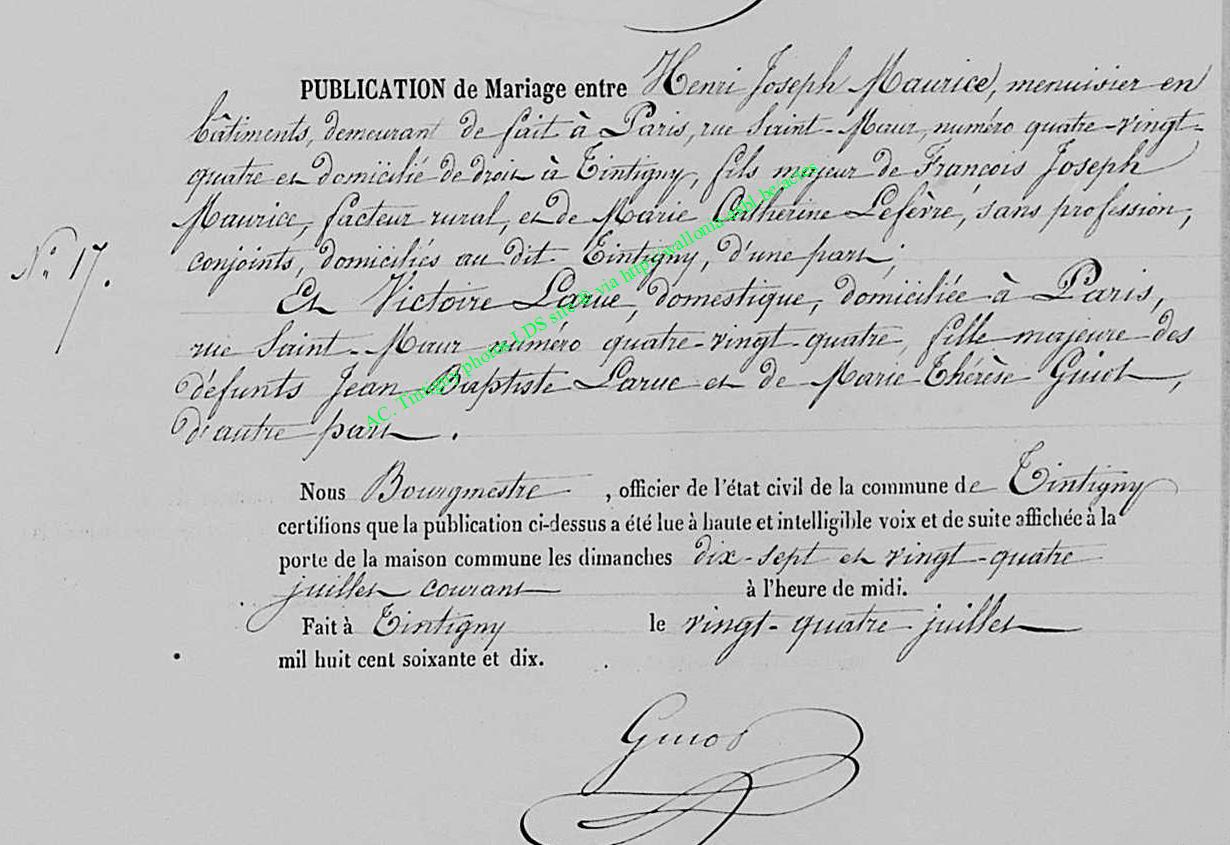 PUBLICATION de Mariage entre Henri Joseph Maurice, menuisier en
bâtiments, demeurant de fait à Paris, rue Saint-Maur, numéro quatre-vingt-
quatre et domicilié de droit à Tintigny, fils majeur de François Joseph
Maurice, facteur rural, et de Marie Catherine Lefèvre, sans profession,
N° 17.
conjoints, domiciliés au dit Tintigny, d'une part;
Et Victoire Larue, domestique, domiciliée à Paris,
rue Saint-Maur numéro quatre-vingt-quatre, fille majeure des
défunts Jean Baptiste Larue et de Marie Thérèse Guiot,
d'autre part.
AC. Tintigny photos LDS site © via http://wallonia-asbl.be/actes
Nous Bourgmestre, officier de l'état civil de la commune de Tintigny
certifions que la publication ci-dessus a été lue à haute et intelligible voix et de suite affichée à la
porte de la maison commune les dimanches dix-sept et vingt-quatre
juillet courant à l'heure de midi.
Fait à Tintigny le vingt-quatre juillet
mil huit cent soixante et dix.
Guiot